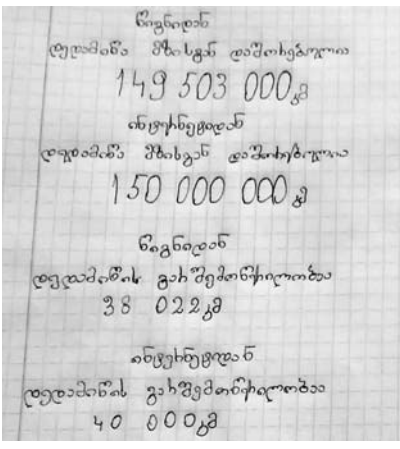 წიგნიდან
დედამიწა მზისგან დაშორებულია
149 503 000 კმ
ინტერნეტიდან
დედამიწა მზისგან დაშორებულია
150 000 000 კმ
წიგნიდან
დედამიწის გარშემოწერილობაა
38 022 კმ
ინტერნეტიდან
დედამიწის გარშემოწერილობაა
40 000 კმ